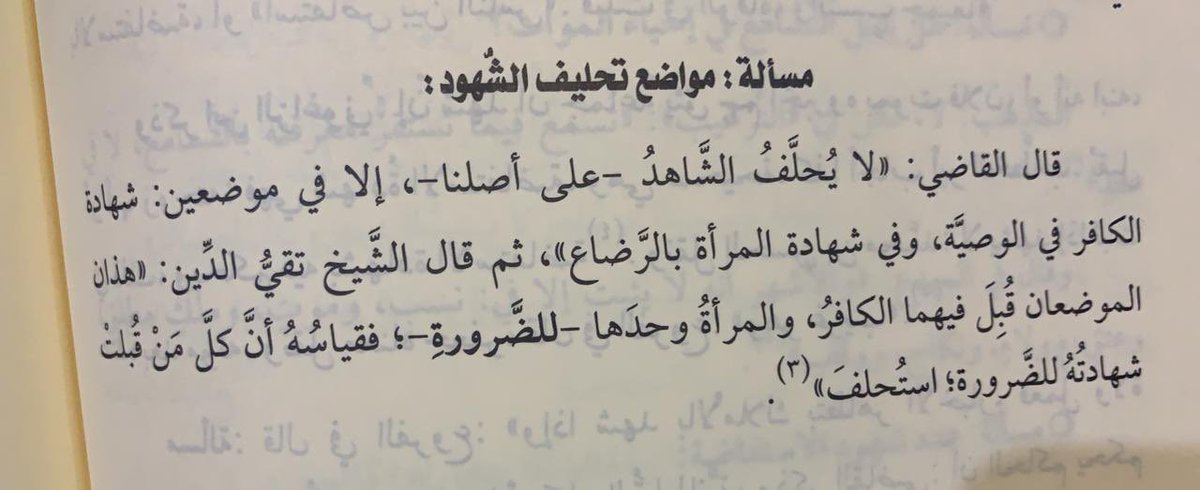 مسألة: مواضع تحليف الشُهود:
قال القاضي: «لا يُحلَّفُ الشَّاهدُ -على أصلنا-، إلا في موضعين: شهادة
الكافر في الوصيَّة، وفي شهادة المرأة بالرَّضاع»، ثم قال الشَّيخ تقيُّ الدِّين: «هذان
الموضعان قُبِلَ فيهما الكافرُ، والمرأةُ وحدَها -للضَّرورةِ-؛ فقياسُهُ أنَّ كلَّ مَنْ قُبلتْ
شهادتُهُ للضَّرورة؛ استُحلفَ»(٣).